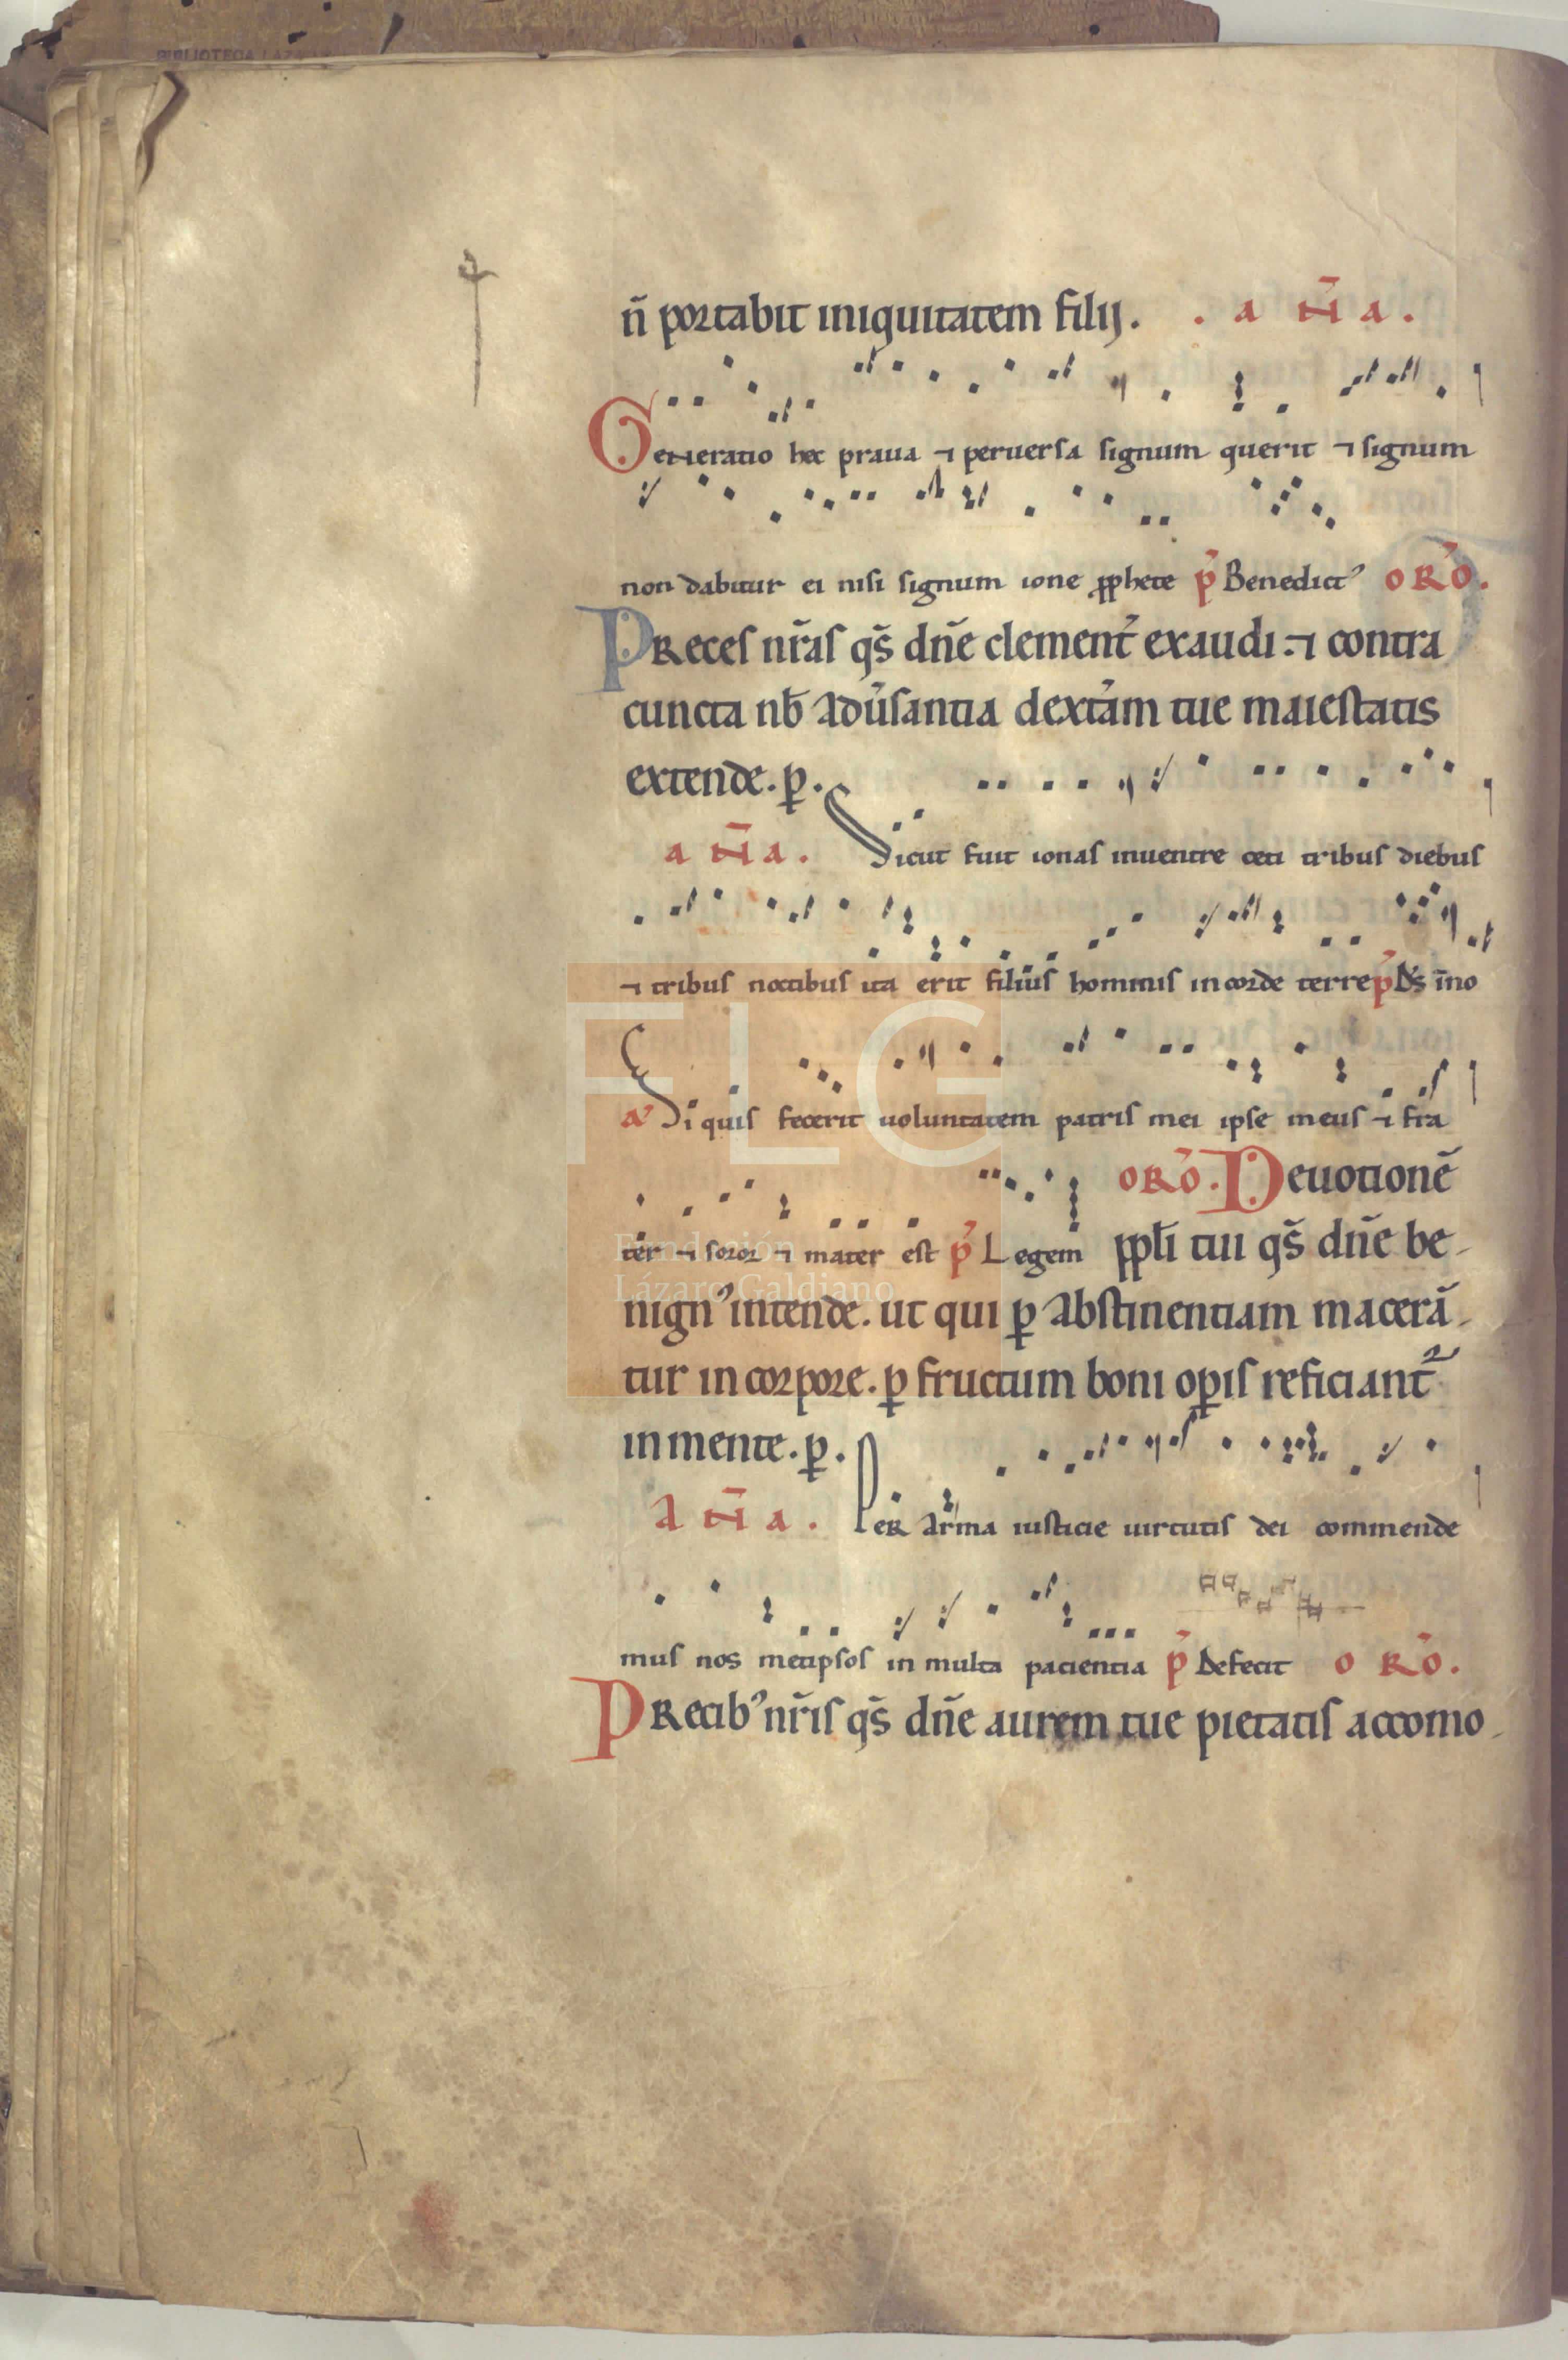 BIBLIOTECA LAZARO
n̄ portabit iniquitatem filij. . a n̄ a .
Generatio hec praua ⁊ peruersa signum querit ⁊ signum
non dabitur ei nisi signum ione ꝓphete p̉ Benedictꝰ oRõ.
PReces nr̄as qs̄ dn̄e clement̉ exaudi. ⁊ contra
cuncta nb̄ adũsantia dextãm tue maiestatis
extende. ꝑ.
a n̄ a . Sicut fuit ionas inuentre ceti tribus diebus
⁊ tribus noctibus ita erit filius hominis incorde terre p̉ Ds̄ īno
a᷑ Si quis fecerit uoluntatem patris mei ipse meus ⁊ fra
oRõ. Deuotionē
ter ⁊ soror ⁊ mater est p̉ Legem ppl̄i tui qs̄ dn̄e be-
nignꝰ intende. ut qui ꝑ abstinentiam macerā-
tur in corpore. ꝑ fructum boni oꝑis reficiant᷑
inmente. ꝑ.
a n̄ a . PeR arma iusticie uirtutis dei commende
mus nos metipsos in multa pacientia p̉ Defecit o Rõ.
PRecibꝰ nr̄is qs̄ dn̄e aurem tue pietatis accomo-
FLG
Fundación
Lázaro Galdiano